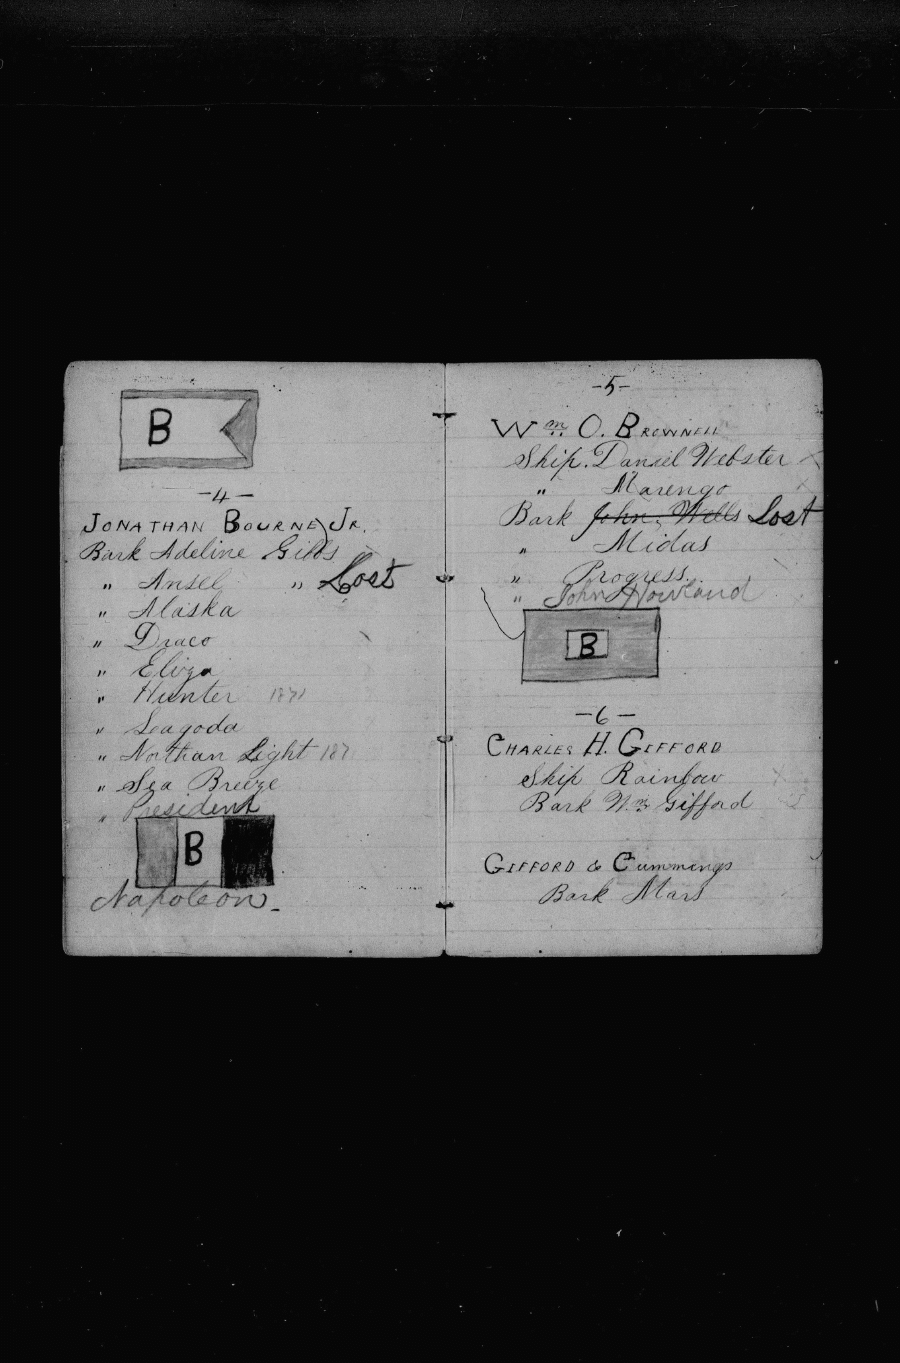 B
-4-
JONATHAN BOURNE JR.
Bark Adeline Gibbs
" Ansel " Lost
" Alaska
" Draco
" Eliza
" Hunter 1871
" Seagoda
" Northan Light 187
" Sea Breeze
" President
B
Napoleon
-5-
Wm O. BROWNELL
Ship. Daniel Webster
" Marengo
Bark John Wells Lost
" Midas
" Progress
" John Howland
B
-6-
CHARLES H. GIFFORD
Ship Rainbow
Bark Wm Gifford
GIFFORD & Cummings
Bark Mars